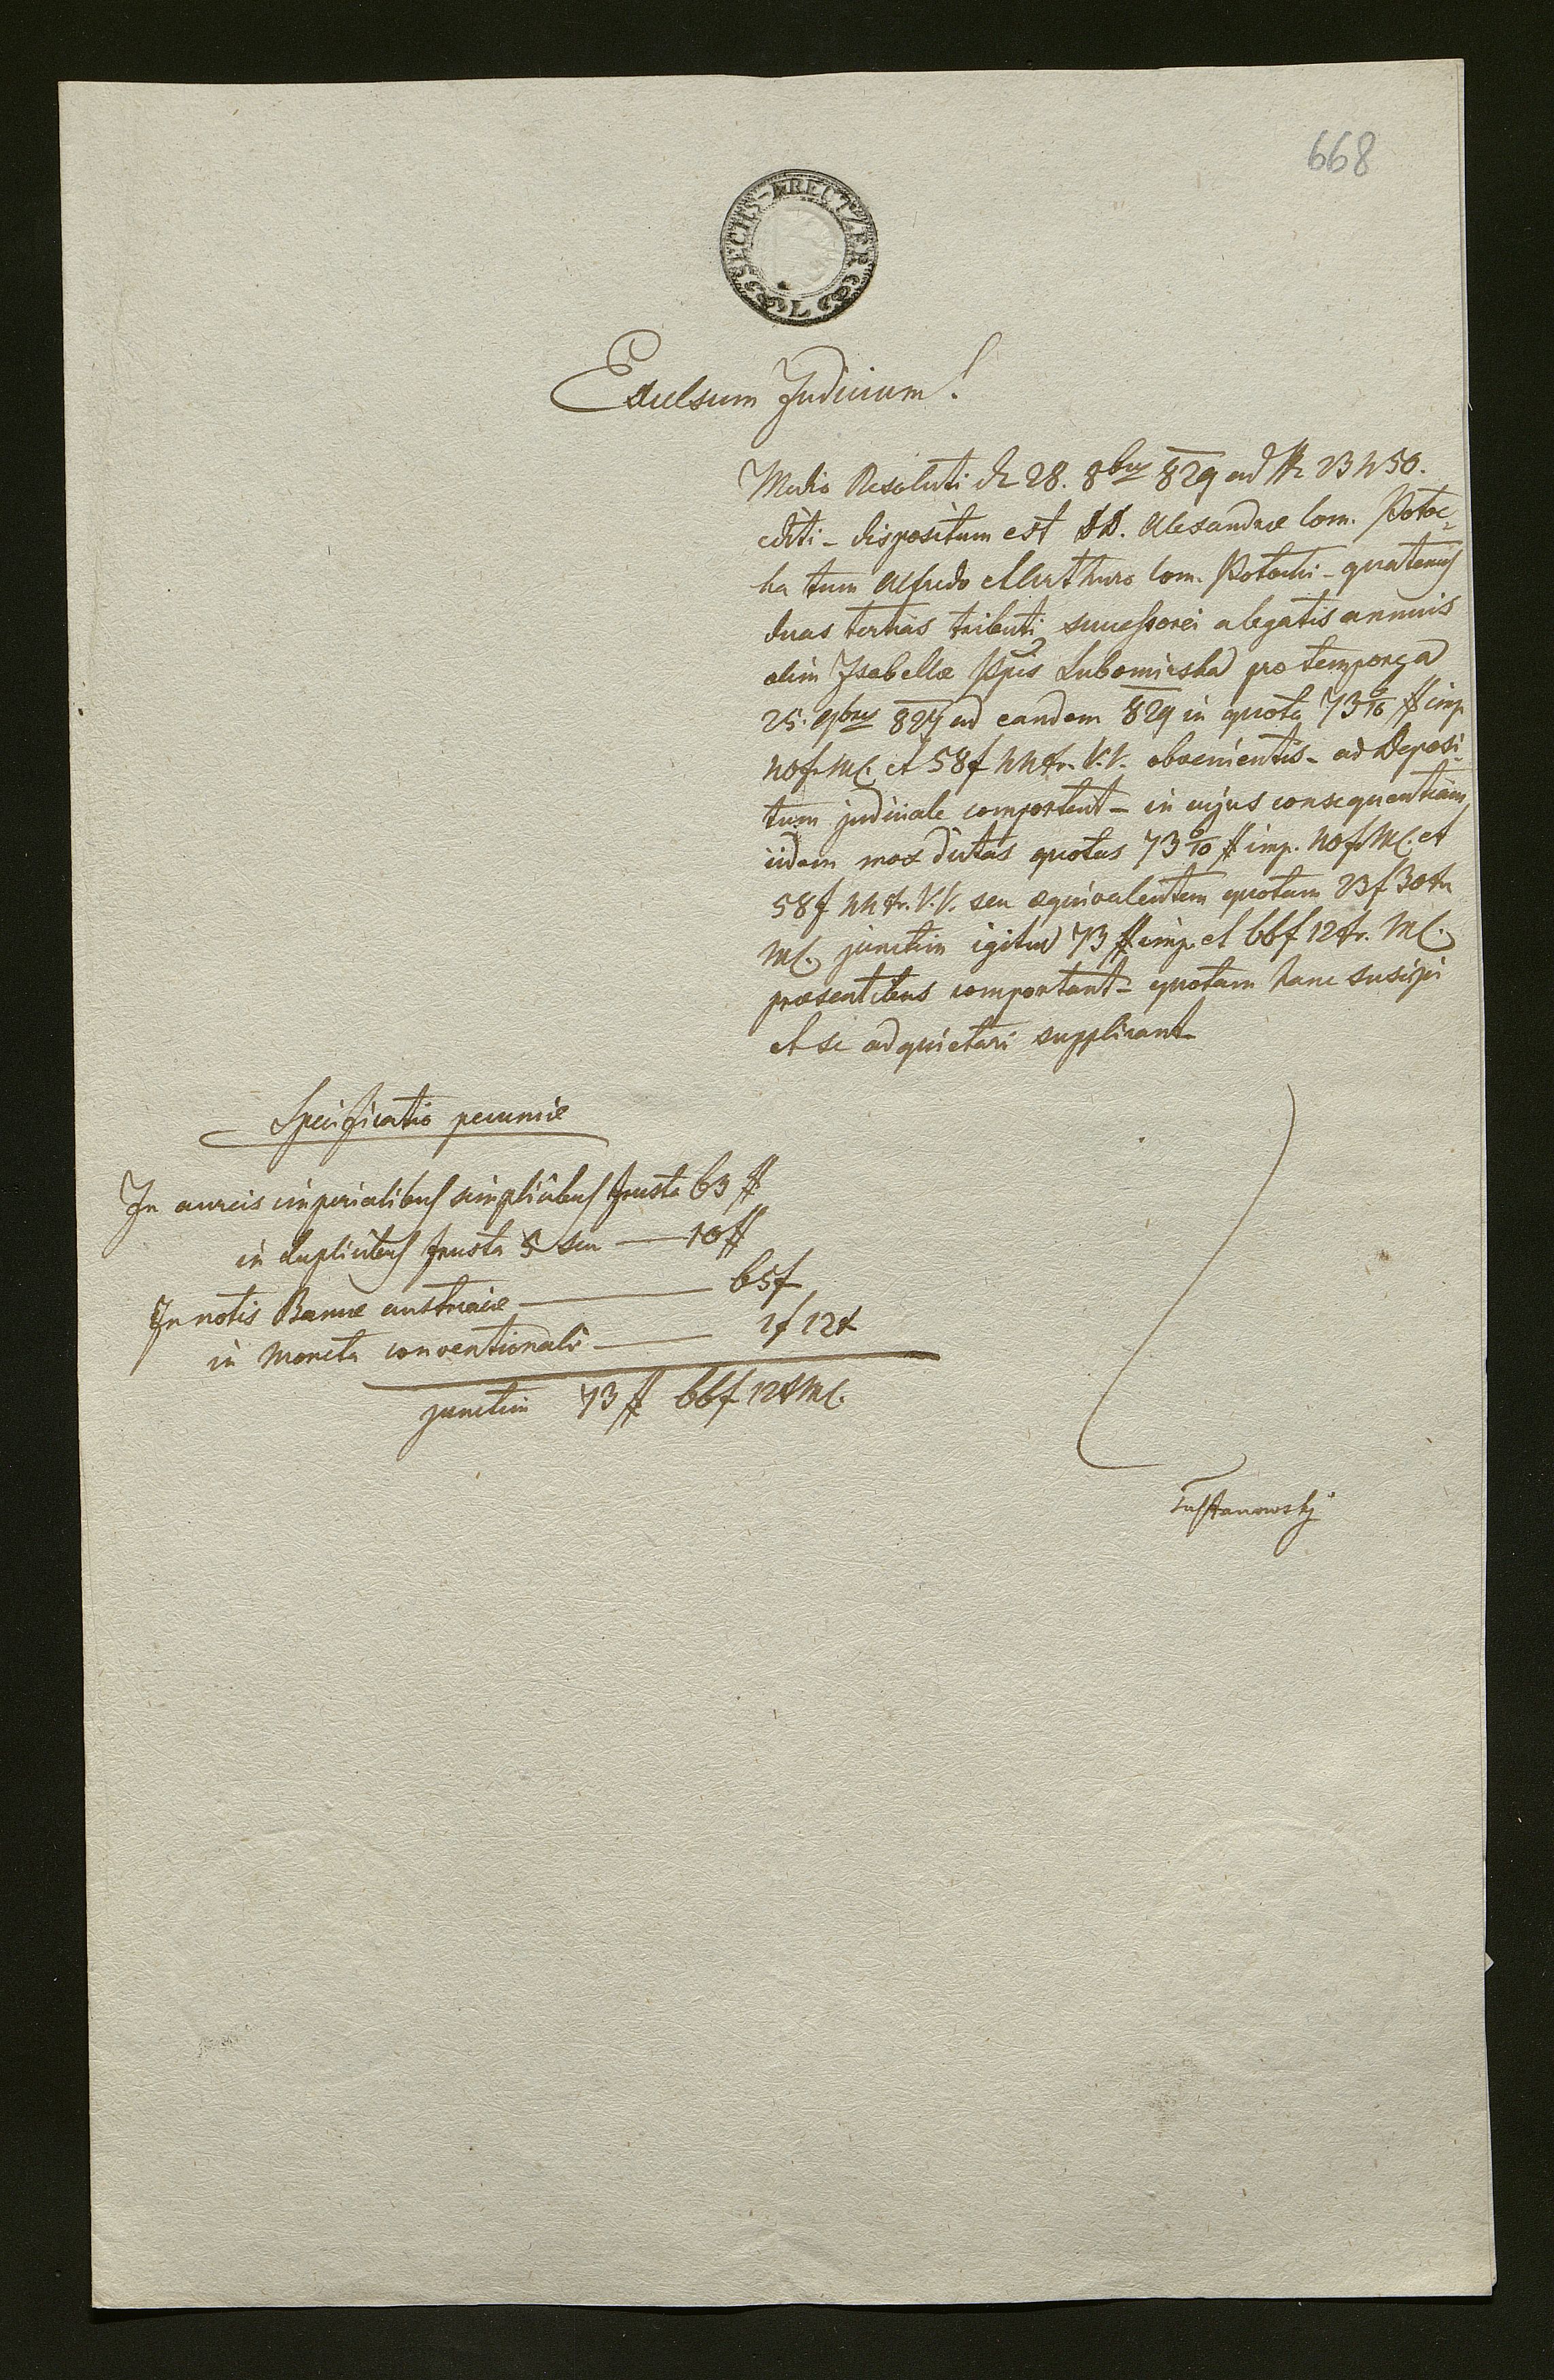 668
SECHS-KREUTZER
L
Excelsum Judicium!
Medio Resoluti de 28. 8bris 829 ad Nr 23450.
editi - dispositum est DD. Alexandrae Com. Potoc-
ka tum Alfredo et Arthuro Com. Potocki - quatenus
duas tertias tributi successorei a legatis annuis
olim Isabellae Ppis Lubomirska pro tempore a
25. 9bris 827 ad eandem 829 in quota 73 9/10 # imp
40 fr. MC. et 58 f 44 xr. V.V. obvenientis - ad Deposi-
tum judiciale comportent - in cujus consequentiam
iidem mox dictas quotas 73 9/10 # imp. 40 fr MC. et
58 f 44 xr. V.V. seu aequivalentem quotam 23 f 30 xr
MC. junctim igitur 73 # imp. et 66 f 12 xr. MC.
praesentibus comportant - quotam hanc suscipi
et se adquietari supplicant
Specificatio pecuniae
In aureis imperialibus simplicibus frusta 63 #
in duplicibus frusta 5 seu — 10 #
In notis Bancae austriacae — 65 f
in Moneta conventionali — 1 f 12 x
junctim 73 # 66 f 12 x MC.
Tustanowskj